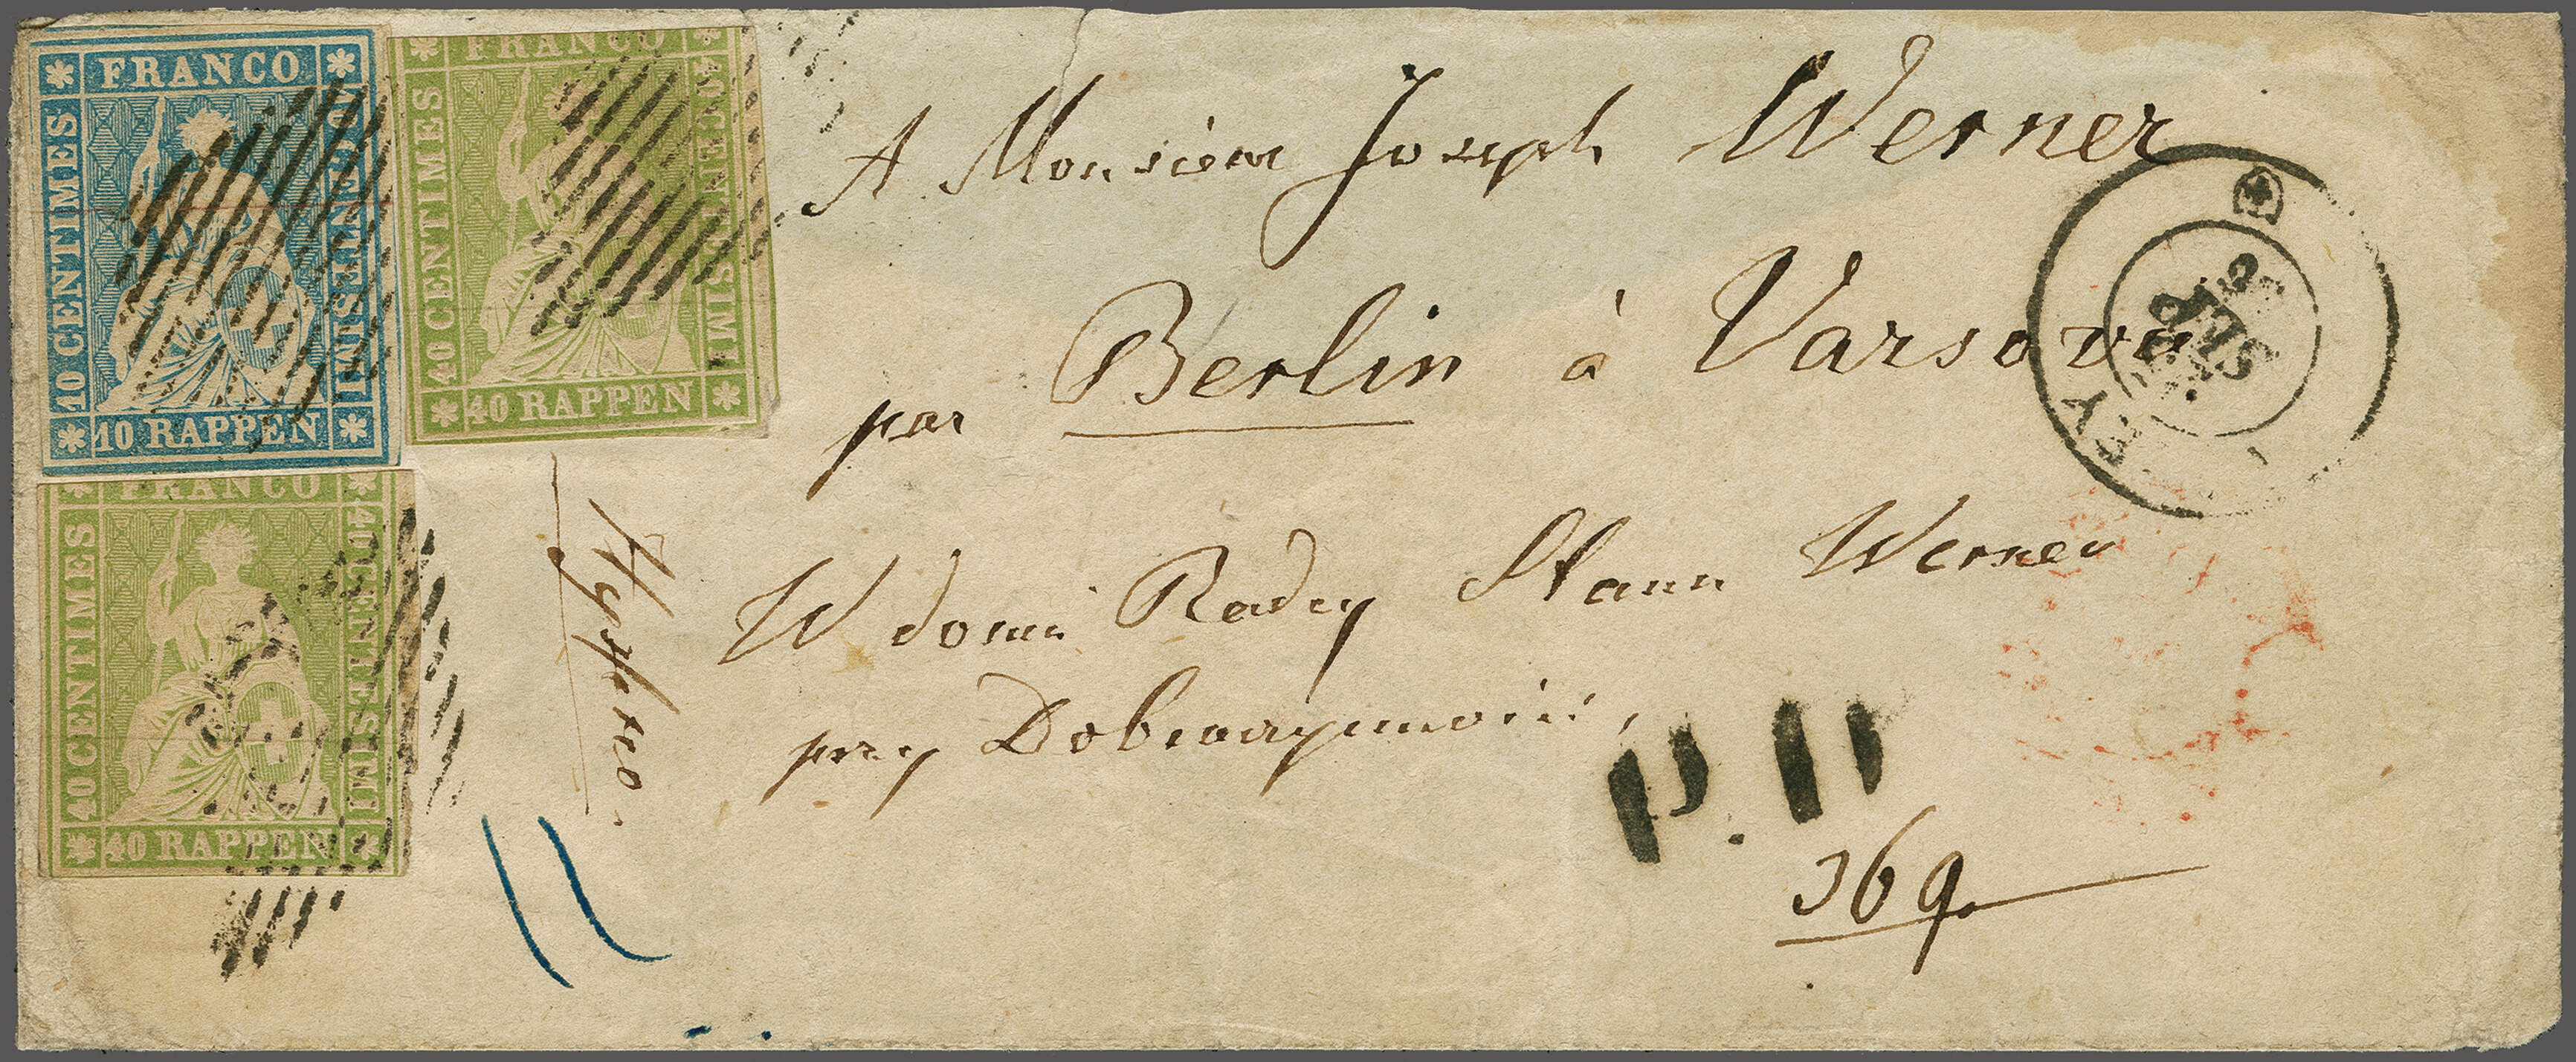 FRANCO
10 CENTIMES
10 CENTESIMI
10 RAPPEN
FRANCO
40 CENTIMES
40 CENTESIMI
40 RAPPEN
FRANCO
40 CENTIMES
40 CENTESIMI
40 RAPPEN
A Monsieur Joseph Werner
par Berlin à Varsovie
W domu Radcy Stanu Werner
przy
P.P.
369
SEP
EY